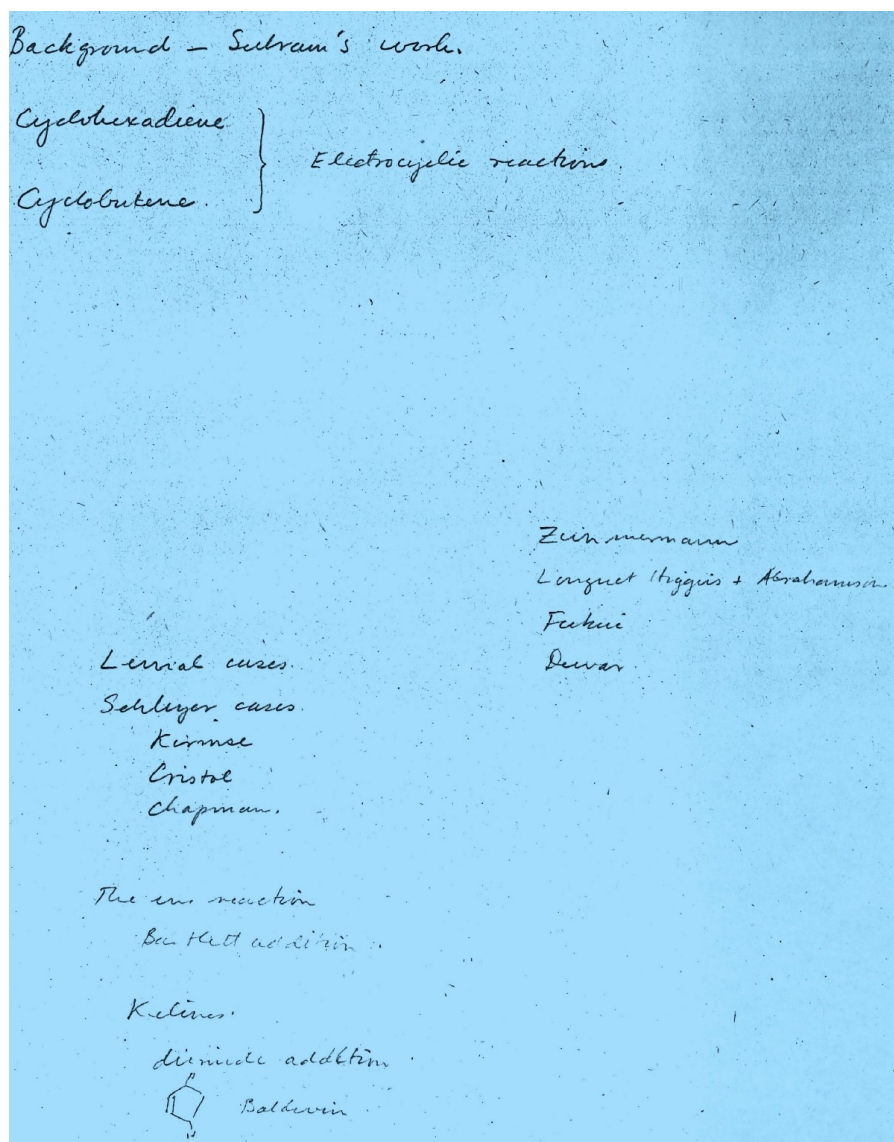 Background – Subram's work.
Cyclohexadiene
Electrocyclic reactions.
Cyclobutene.
Zimmermann
Longuet Higgins + Abrahamson.
Fukui
Dewar.
cases.
Schleyer cases.
Kirmse
Cristol
Chapman.
The ene reaction
Bartlett addition.
Ketenes.
diimide addition.
Baldwin